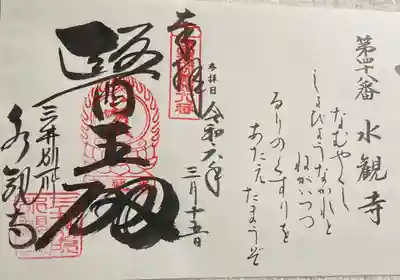 第四十八番 水観寺
なむやくし
しよびようなかれと
ねがいつつ
るりのくすりを
あたえ
たまうぞ
奉拝
参拝日 令和六年
三月十五日
醫王殿
三井別所
水観寺